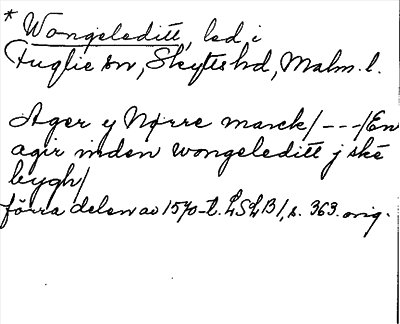 * Wongeleditt, led i
Fuglie sn, Skytts hd, Malm. l.
Ager y Nørre marck/ --- /En
agir inden wongeleditt j ske
bygh/
förra delen av 1570-t. LSLB 1, s. 363. orig.